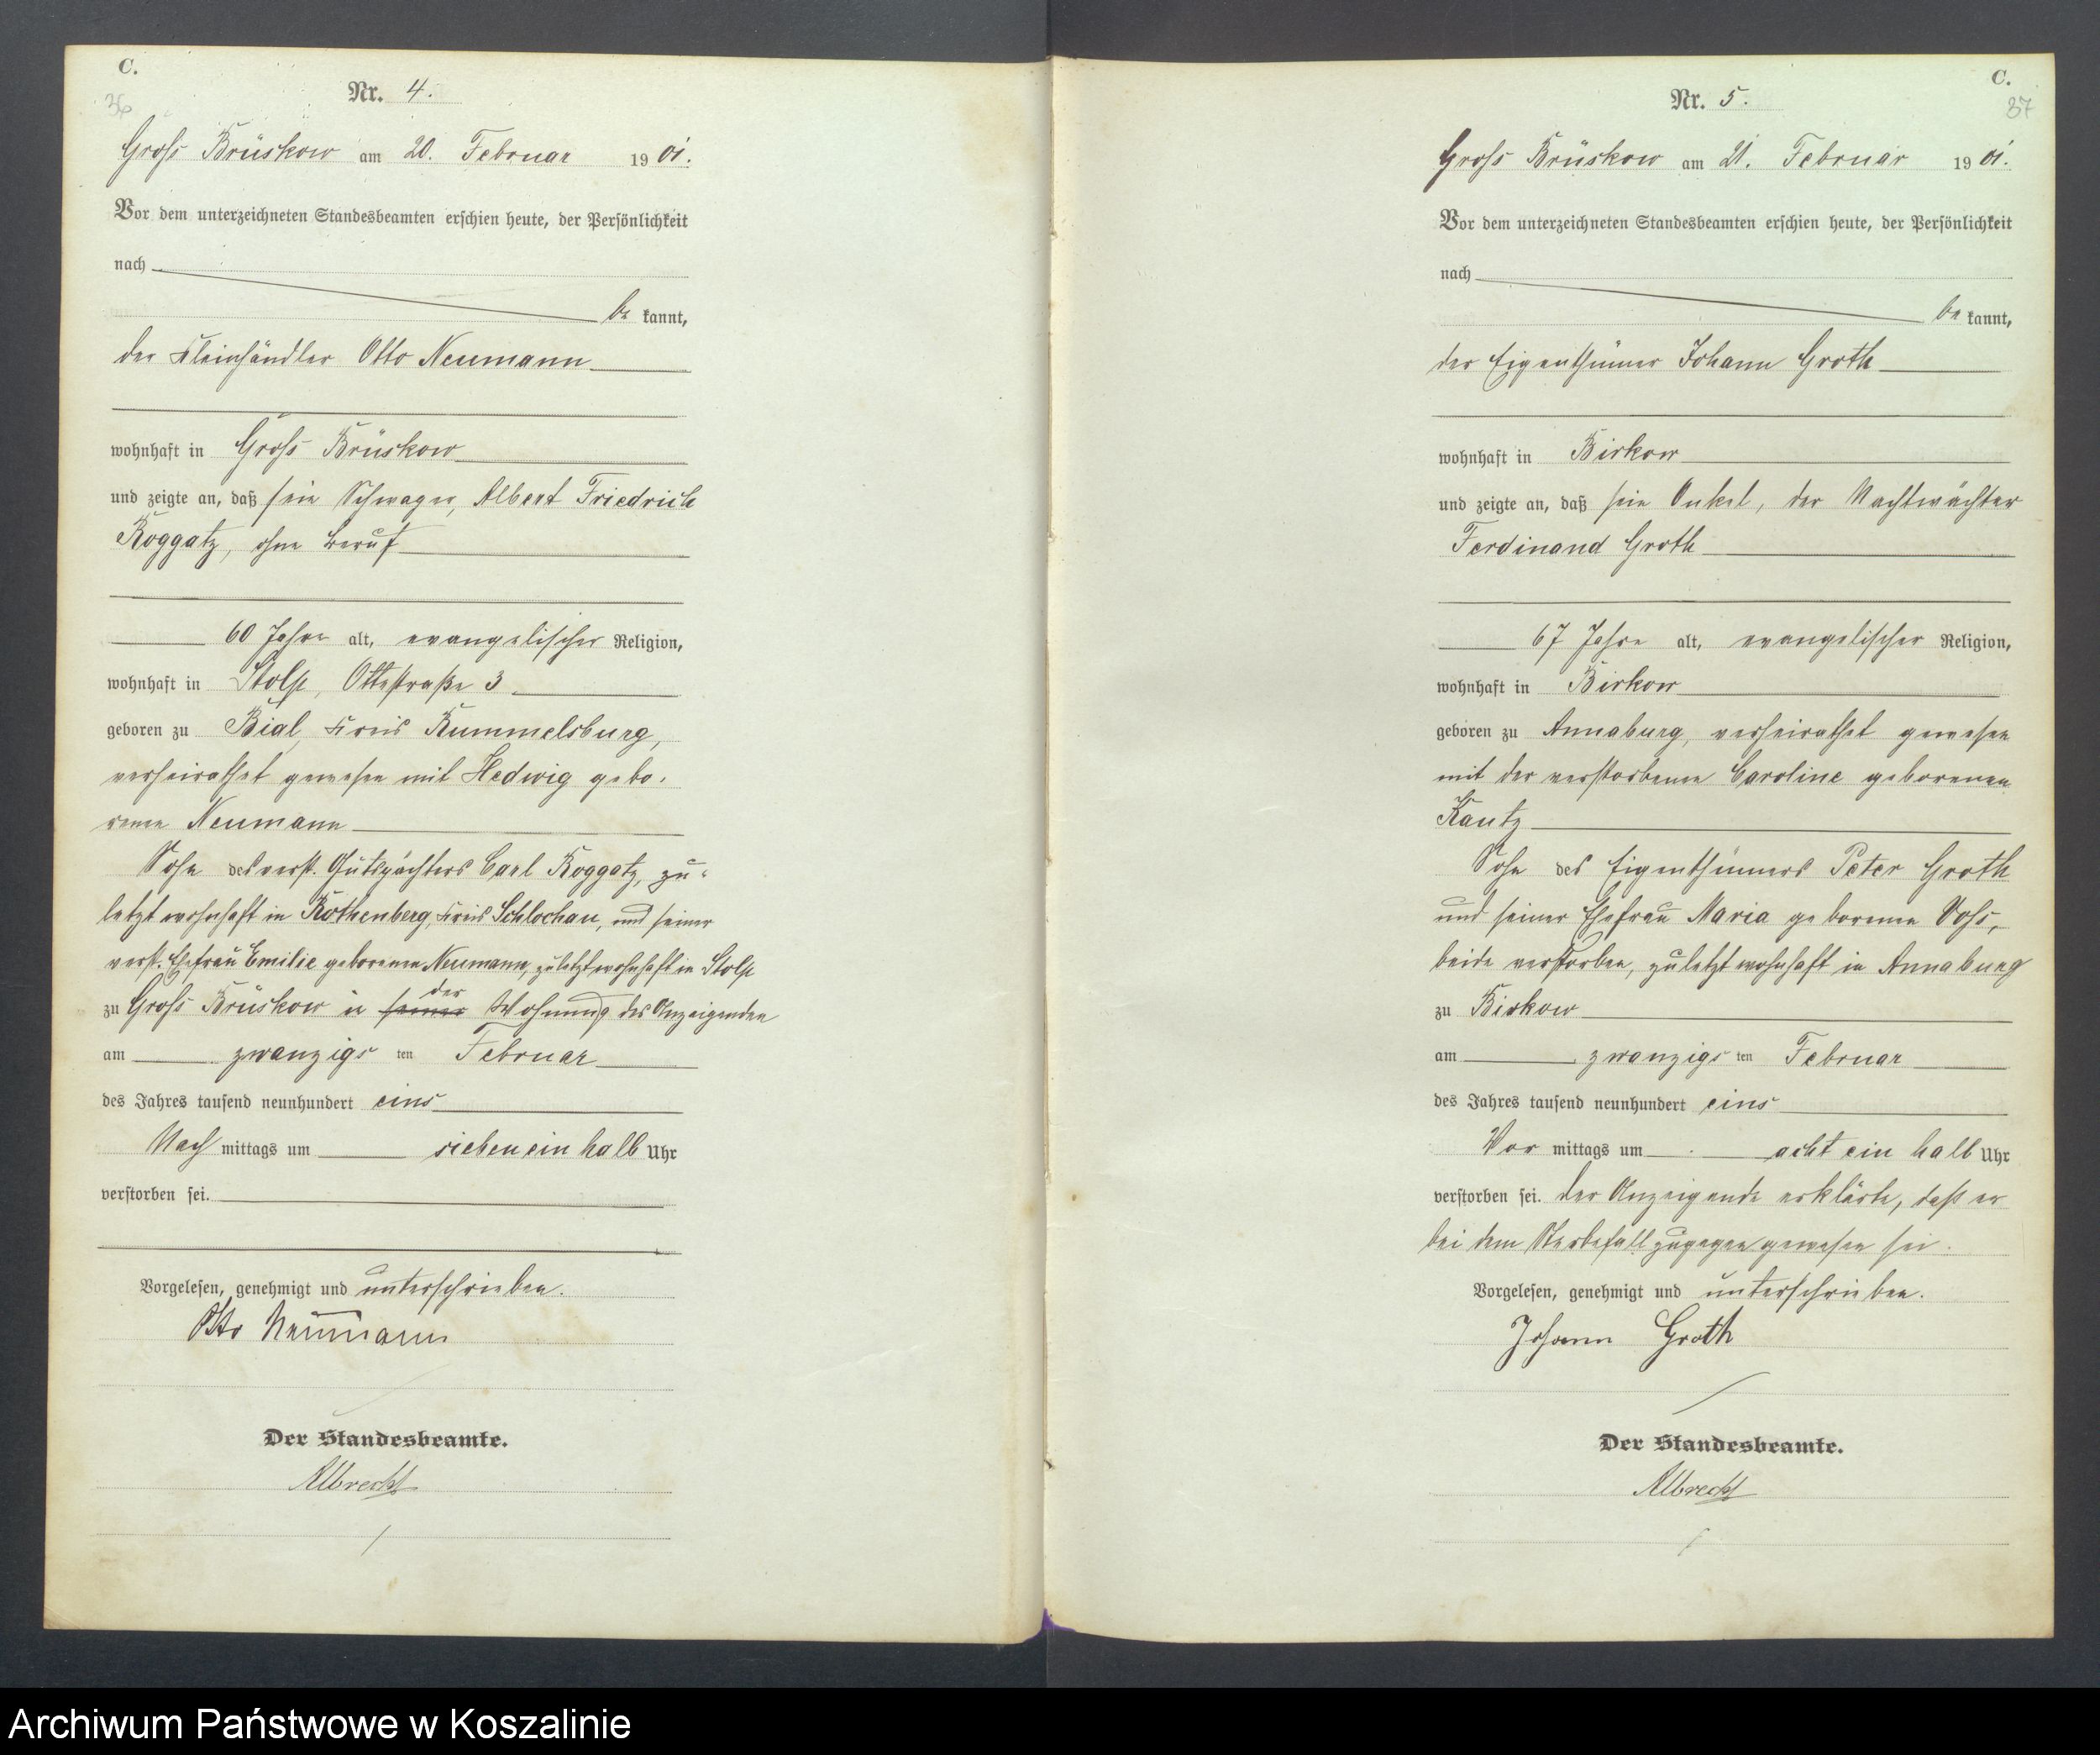 C.
36
Nr. 4.
Gross Brüskow am 20. Februar 1901.
Vor dem unterzeichneten Standesbeamten erschien heute, der Persönlichkeit
nach
be kannt,
der Kleinhändler Otto Neumann
wohnhaft in Gross Brüskow
und zeigte an, daß sein Schwager, Albert Friedrich
Roggatz, ohne Beruf
60 Jahre alt, evangelischer Religion,
wohnhaft in Stolp, Ottostraße 3
geboren zu Bial, Kreis Rummelsburg,
verheirathet gewesen mit Hedwig gebo-
renen Neumann
Sohn des verst. Gutspächters Carl Roggatz, zu-
letzt wohnhaft in Rothenberg, Kreis Schlochau, und seiner
verst. Ehefrau Emilie geborenen Neumann, zuletzt wohnhaft in Stolp
der
zu Gross Brüskow in seiner Wohnung des Anzeigenden
am zwanzigs ten Februar
des Jahres tausend neunhundert eins
Nach mittags um sieben ein halb Uhr
verstorben sei.
Vorgelesen, genehmigt und unterschrieben.
Otto Neumann
Der Standesbeamte.
Albrecht
C.
37
Nr. 5.
Gross Brüskow am 21. Februar 1901.
Vor dem unterzeichneten Standesbeamten erschien heute, der Persönlichkeit
nach
be kannt,
der Eigenthümer Johann Groth
wohnhaft in Birkow
und zeigte an, daß sein Onkel, der Nachtwächter
Ferdinand Groth
67 Jahre alt, evangelischer Religion,
wohnhaft in Birkow
geboren zu Annaburg, verheirathet gewesen
mit der verstorbenen Caroline geborenen
Kautz
Sohn des Eigenthümers Peter Groth
und seiner Ehefrau Maria geborenen Voss,
beide verstorben, zuletzt wohnhaft in Annaburg
zu Birkow
am zwanzigs ten Februar
des Jahres tausend neunhundert eins
Vor mittags um acht ein halb Uhr
verstorben sei. Der Anzeigende erklärte, daß er
bei dem Sterbefall zugegen gewesen sei.
Vorgelesen, genehmigt und unterschrieben.
Johann Groth
Der Standesbeamte.
Albrecht
Archiwum Państwowe w Koszalinie